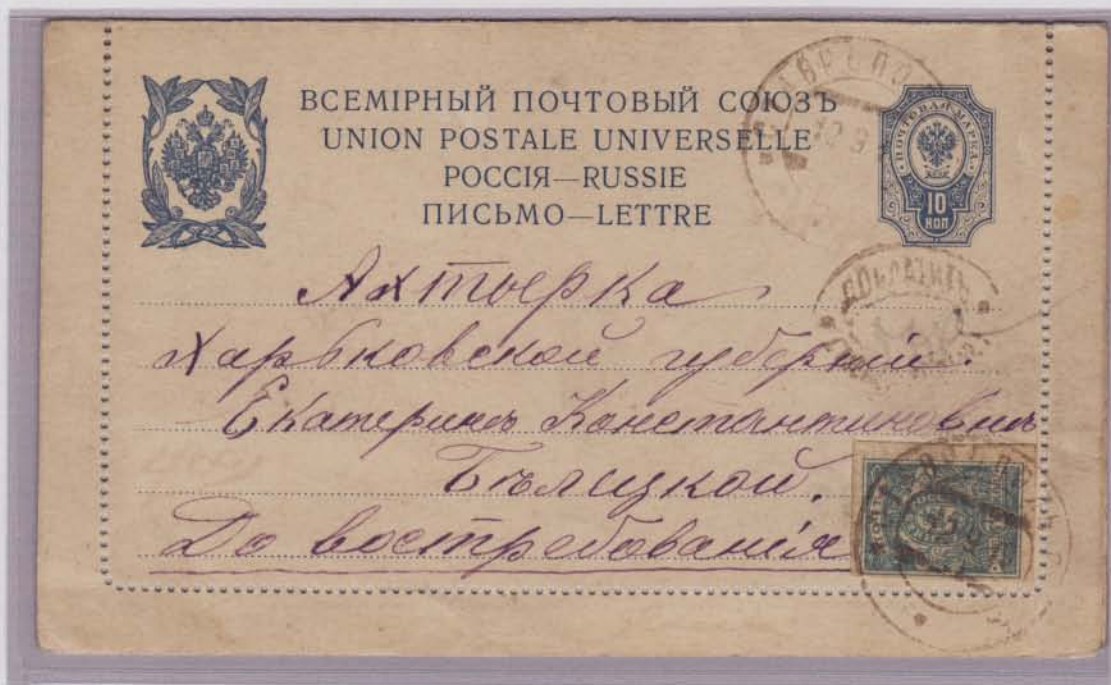 ВСЕМІРНЫЙ ПОЧТОВЫЙ СОЮЗЪ
UNION POSTALE UNIVERSELLE
РОССІЯ—RUSSIE
ПИСЬМО—LETTRE
ПОЧТОВАЯ МАРКА
10
КОП
Ахтырка
Харьковской губерніи.
Екатеринѣ Константиновнѣ
Бѣлицкой.
До востребованія